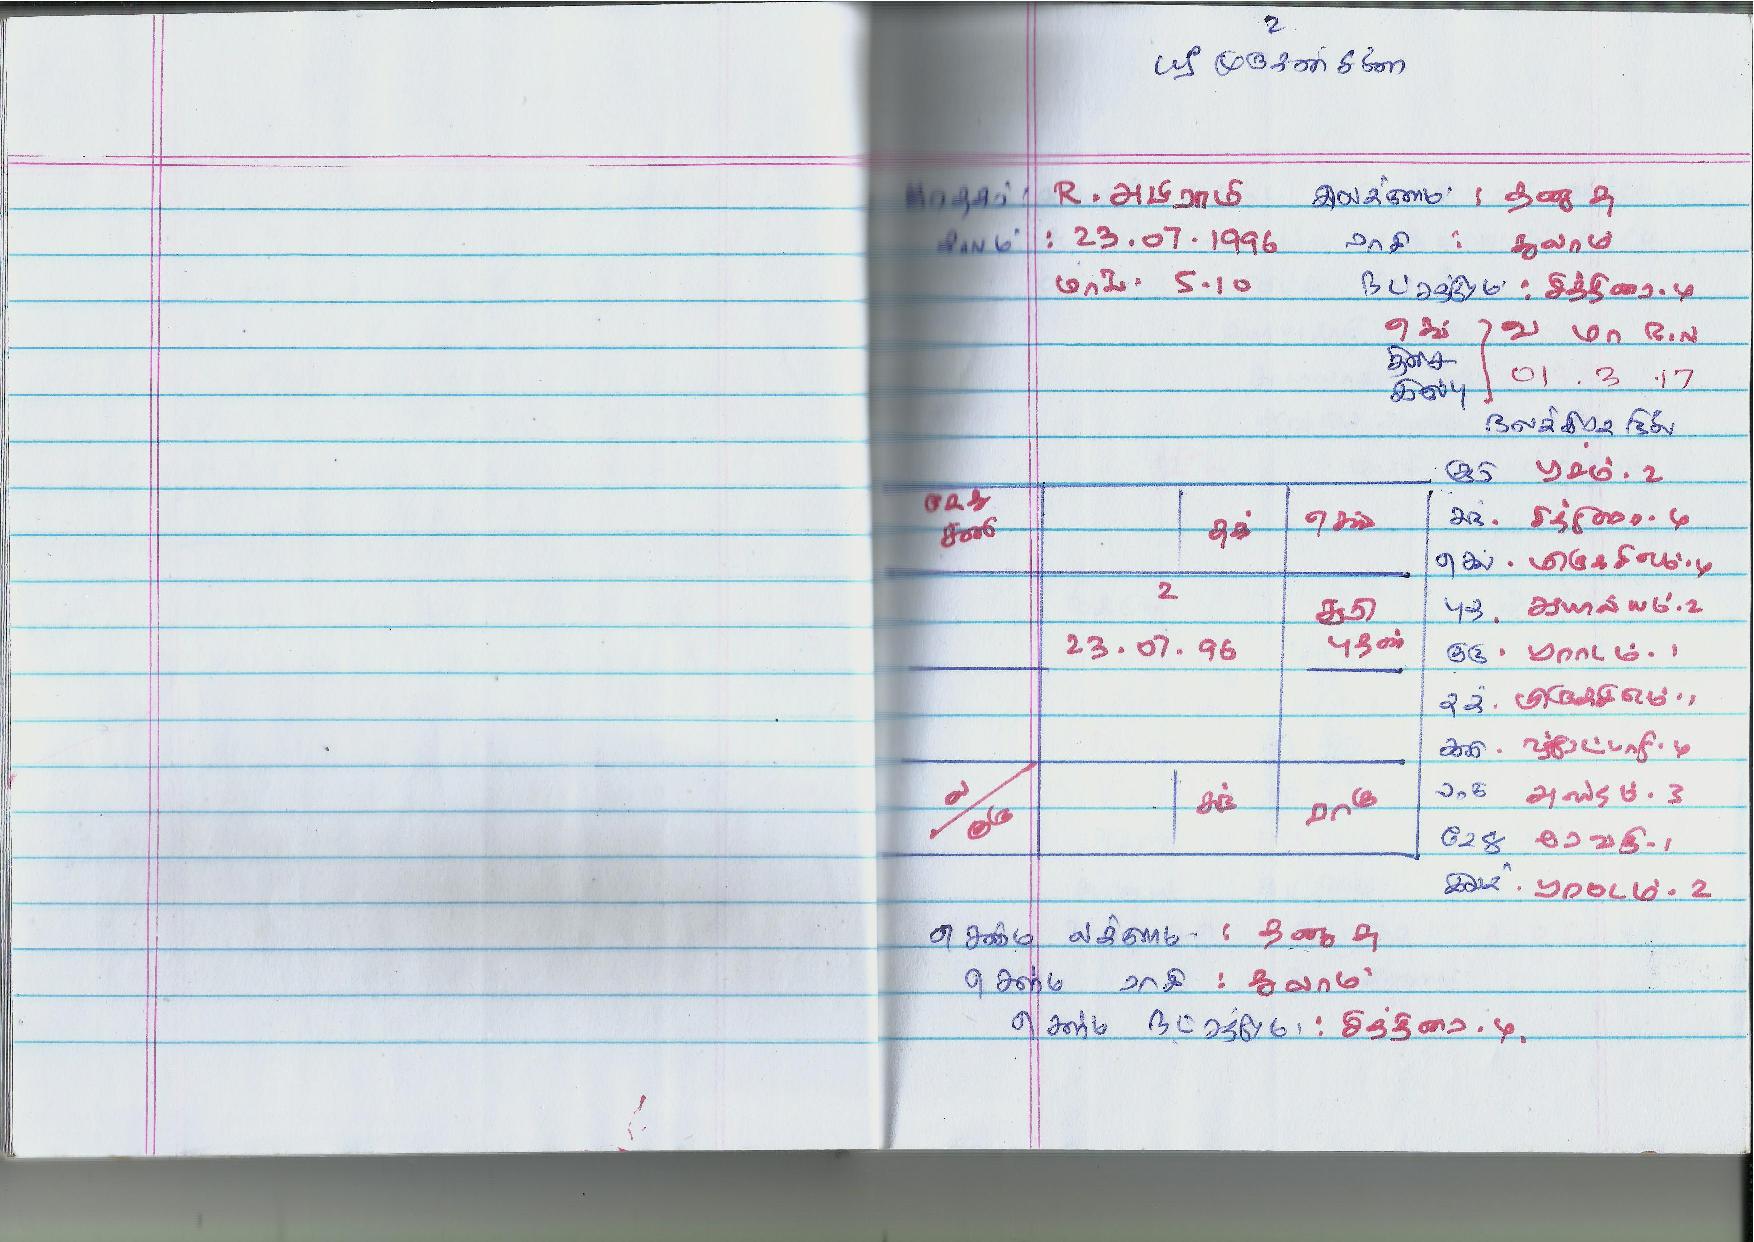 உ
ஸ்ரீ முருகன் துணை
ஜாதகர் : R. அபிராமி லக்னம் : தனுசு
: 23.07.1996 ராசி : துலாம்
மாலை 5.10 நட்சத்திரம் : சித்திரை.4
செவ் வ மா நா
திசை
இருப்பு 01 . 3 .17
நவக்கிரக நிலை
சூரி பூசம். 2
கேது
சனி
சுக்
செவ்
சந். சித்திரை. 4
செவ். மிருகசீரிஷம். 4
உ
23.07.96
சூரி
புதன்
புத. ஆயில்யம். 2
குரு. பூராடம். 1
சுக். மிருகசீரிஷம். 1
சனி. உத்திரட்டாதி. 4
ல
குரு
சந்
ராகு
ராகு அஸ்தம். 3
கேது ரேவதி. 1
பூராடம். 2
ஜென்ம லக்னம் : தனுசு
ஜென்ம ராசி : துலாம்
ஜென்ம நட்சத்திரம் : சித்திரை. 4.